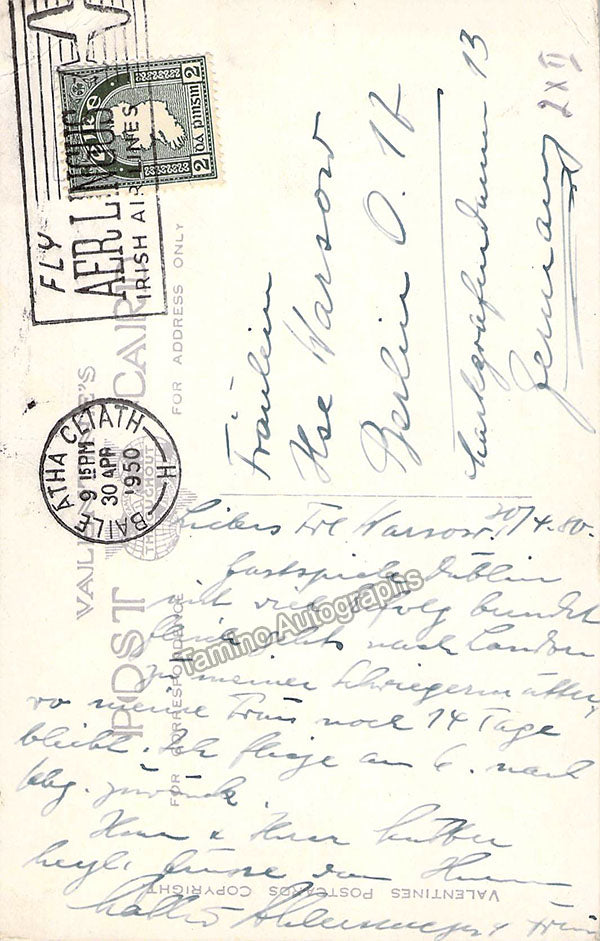 FLY
AER LINGUS
IRISH AIR LINES
2 DÁ PINGIN 2
éire
BAILE ÁTHA CLIATH
9 15 PM
30 APR
1950
H
VALENTINE'S
POST CARD
FOR CORRESPONDENCE
FOR ADDRESS ONLY
THROUGHOUT
Fräulein
Ilse Warsow
Berlin O. 17
Markgrafendamm 13
Germany
2 x II
30/4.50.
Liebes Frl Warsow,
Gastspiele Dublin
mit viel Erfolg beendet
fliege jetzt nach London
zu meiner Schwiegermutter,
wo meine Frau noch 14 Tage
bleibt. Ich fliege am 6. nach
Hbg. zurück.
Ihnen & Ihrer Mutter
herzl. Grüsse von Ihrem
& Frau
VALENTINES POSTCARDS COPYRIGHT
Tamino Autographs